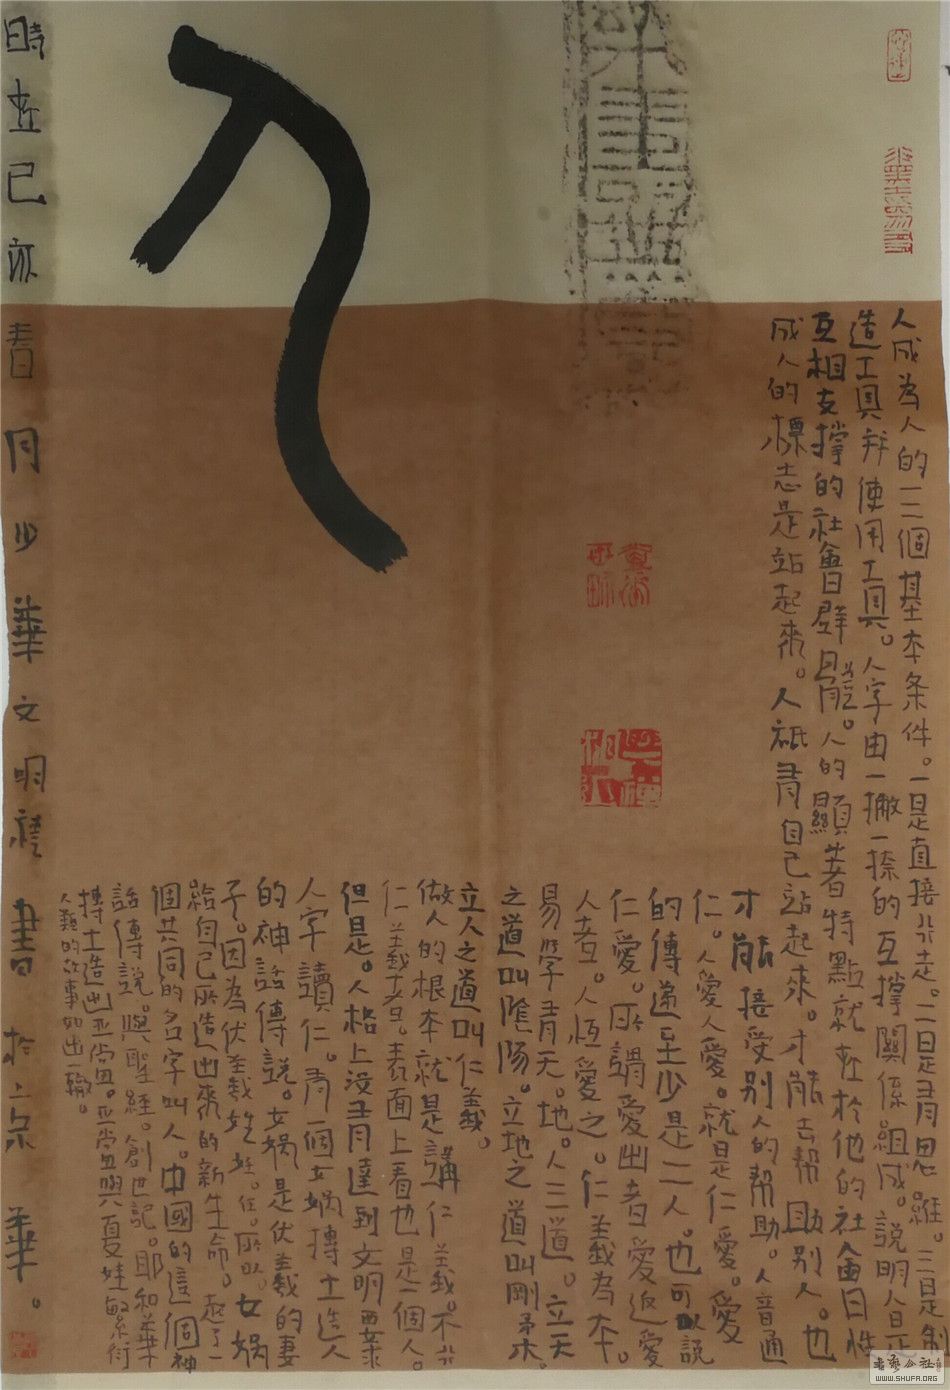 人
人成為人的三個基本条件。一是直接行走。二是有思維。三是制
造工具并使用工具。人字由一撇一捺的互撐關係組成。說明人是
互相支撐的社會群體。人的顯著特點就在於他的社會性
成人的標志是站起來。人衹有自己站起来。才能去帮助别人。也
才能接受别人的帮助。人音通
仁。人愛人愛。就是仁愛。愛
的傳遞至少是二人。也可以説
仁愛。所謂愛出者愛返愛
人者。人恆愛之。仁義為本。
易學有天。地。人三道。立天
之道叫陰陽。立地之道叫剛柔。
立人之道叫仁義。
做人的根本就是講仁義。不行
仁義者。表面上看也是一個人。
但是。人格上没有達到文明要求
人字讀仁。有一個女娲摶土造人
的神話傳説。女娲是伏羲的妻
子。因為伏羲姓任。所以。女娲
給自己所造出来的新生命。起了一
個共同的名字叫人。中國的這個神
話傳説。與聖經。創世記。耶和華
摶土造出亚當。亚當與夏娃繁衍
人類的故事如出一轍。
時在己亦春月少華文明禮書於上京華。
書藝公社
WWW.SHUFA.ORG